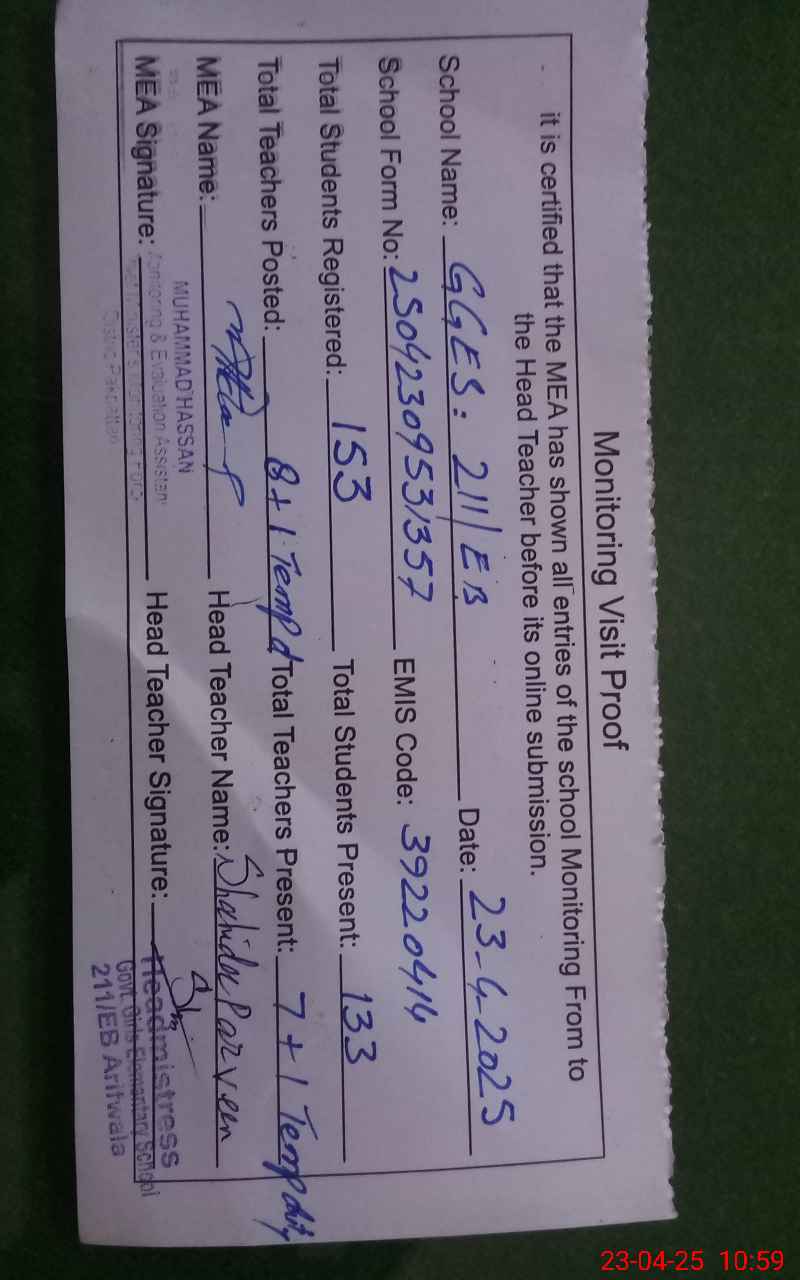 Monitoring Visit Proof
it is certified that the MEA has shown all entries of the school Monitoring From to
the Head Teacher before its online submission.
School Name: GGES: 211/EB Date: 23-4-2025
School Form No: 25042309531357 EMIS Code: 39220414
Total Students Registered: 153 Total Students Present: 133
Total Teachers Posted: 8+1 Temp d Total Teachers Present: 7+1 Temp duty
MEA Name: Head Teacher Name: Shahida Parveen
MUHAMMAD HASSAN
MEA Signature: Monitoring & Evaluation Assistant Head Teacher Signature:
Chief Minister's Monitoring Force
District Pakpattan
Headmistress
Govt. Girls Elementary School
211/EB Arifwala
23-04-25 10:59